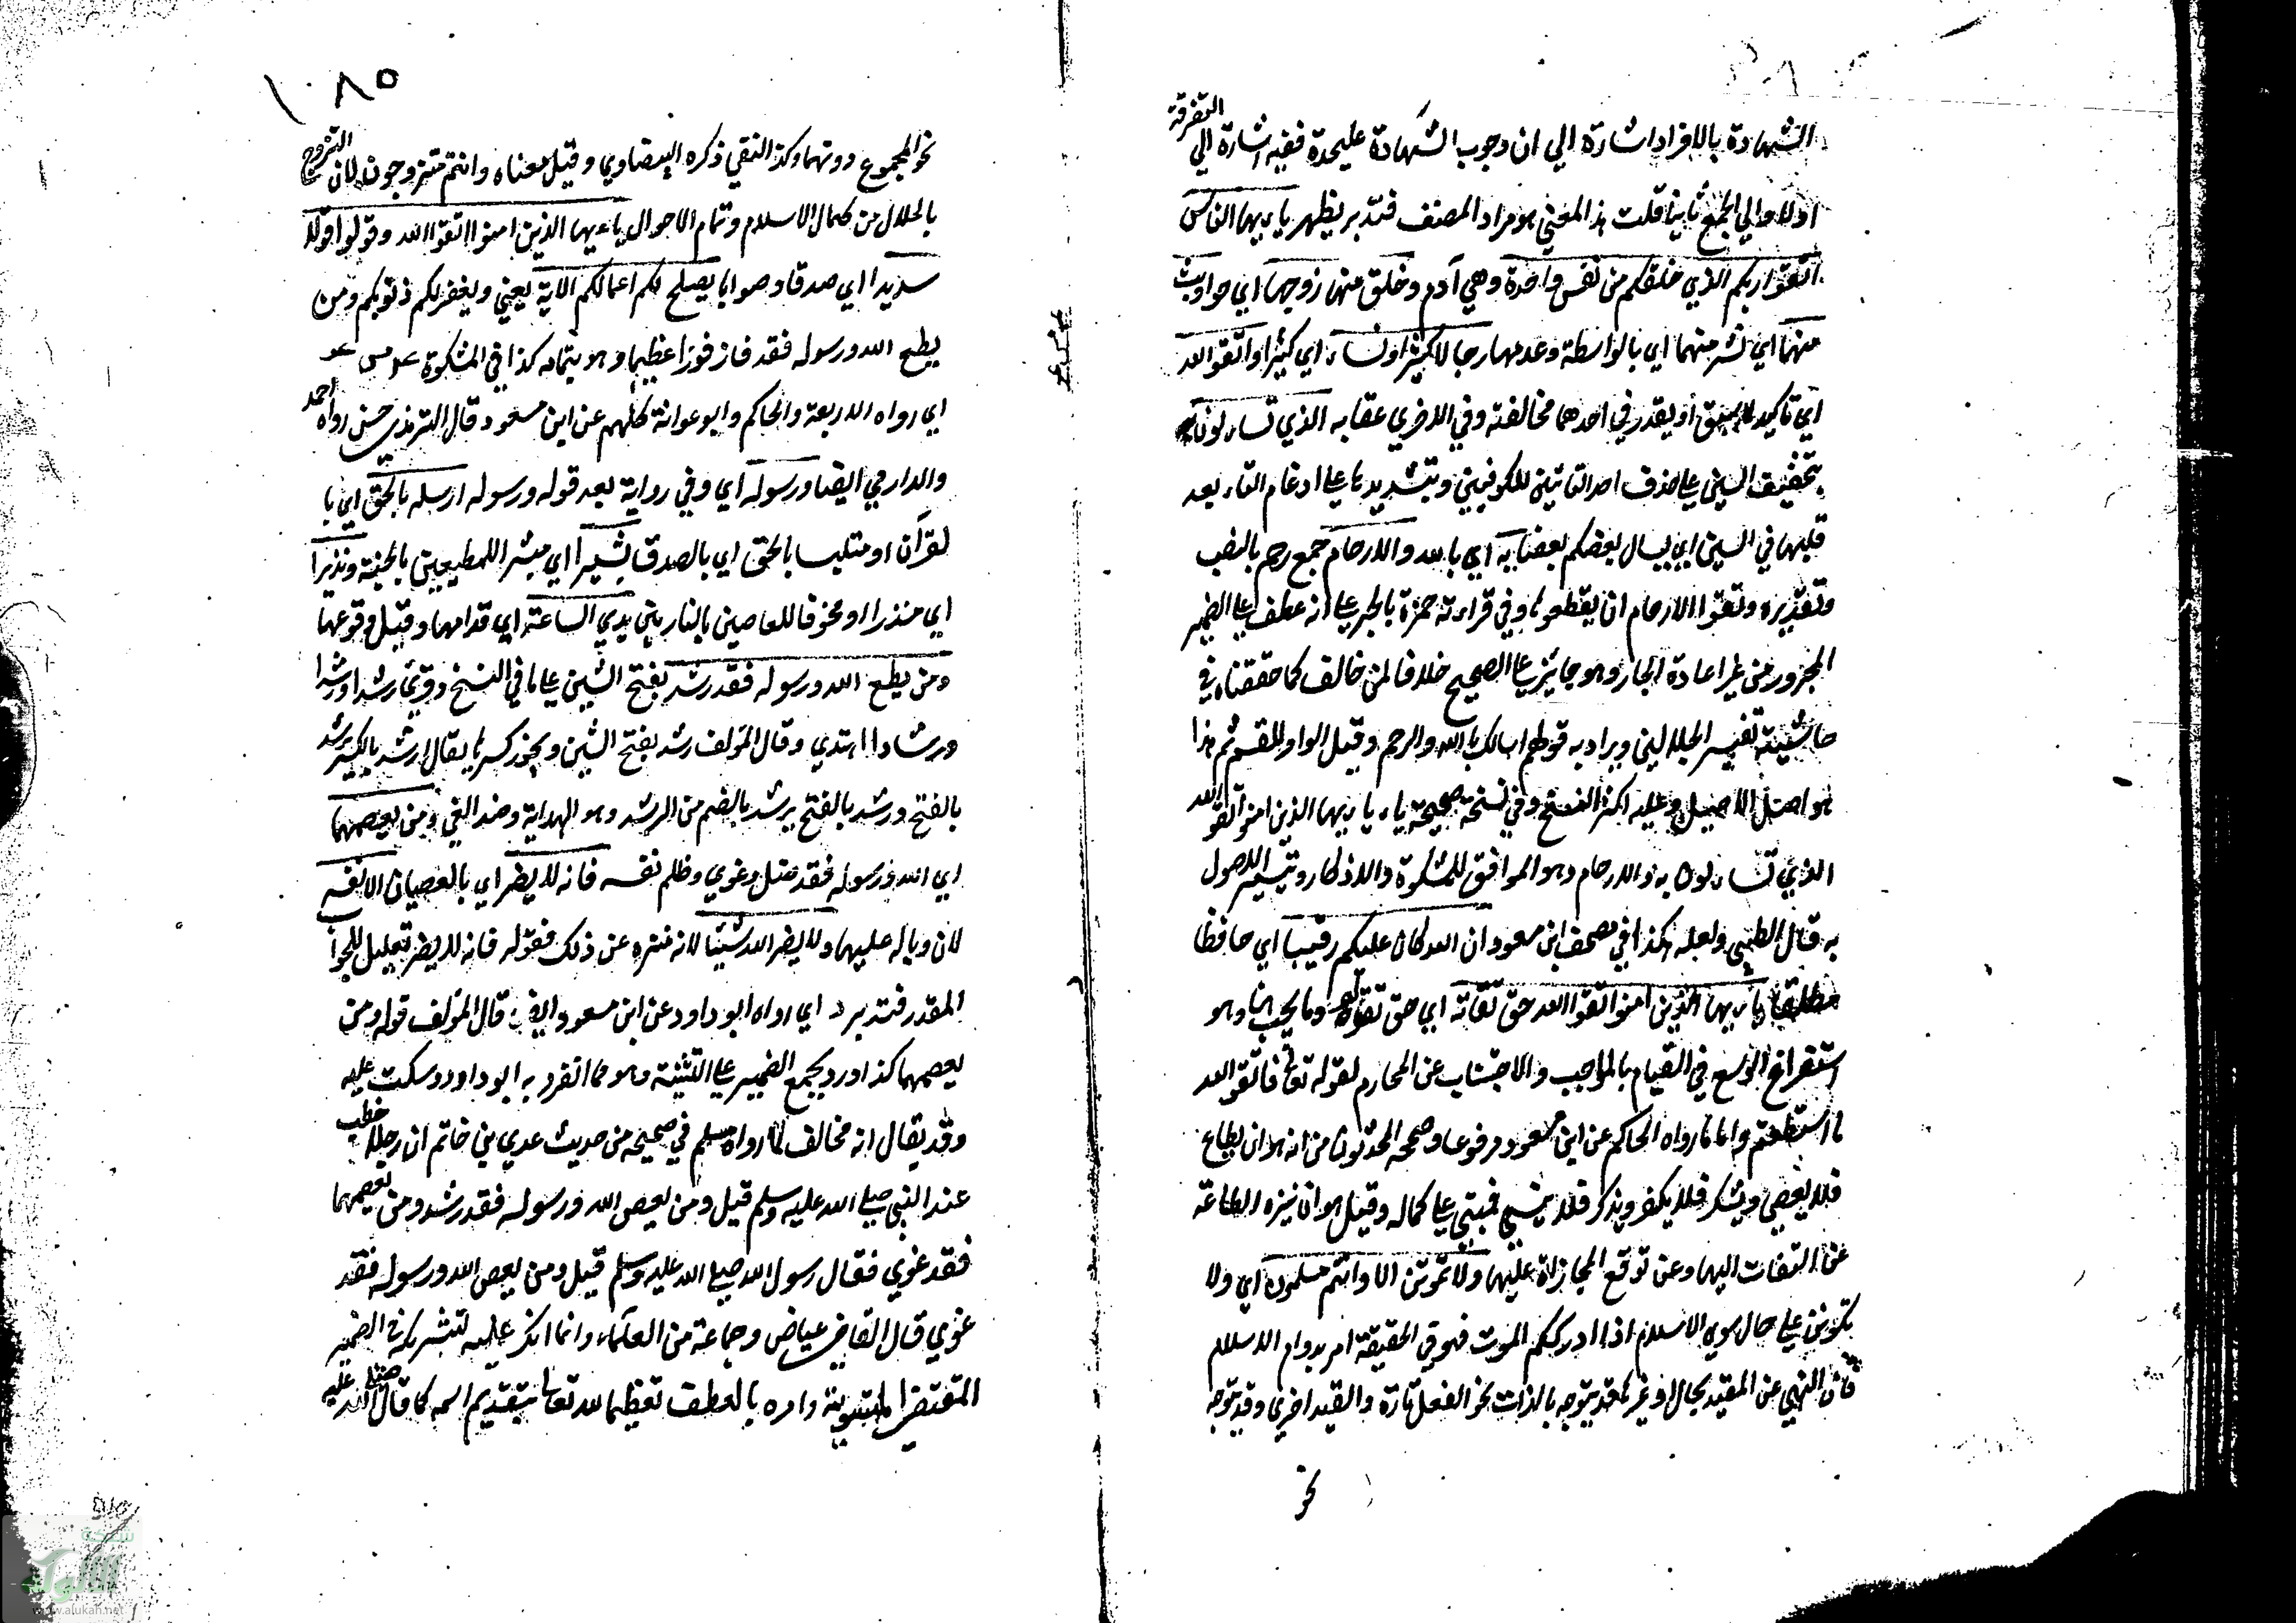 الشهادة بالافراد اشارة الي ان وجوب الشهادة عليحدة ففيه اشارة الي التفرقة
اولا والي الجمع ثانيا قلت هذا المعني هو مراد المصنف فتدبر يظهر يا ايها الناس
اتقوا ربكم الذي خلقكم من نفس واحدة وهي آدم وخلق منها زوجها اي حوا وبث
منهما اي نشر منهما اي بالواسطة وعدمها رجالا كثيرا ونساء اي كثيرا واتقوا الله
اي تاكيد لما سبق او يقدر في احدهما مخالفته وفي الاخري عقابه الذي تساءلون به
بتخفيف السين علي حذف احد التائين للكوفيين وبتشديدها علي ادغام التاء بعد
قلبها في السين اي يسال بعضكم بعضا به اي بالله والارحام جمع رحم بالنصب
وتقديره وتقوا الارحام ان يقطعوها وفي قراءة حمزة بالجر علي انه عطف علي الضمير
المجرور من غير اعادة الجار وهو جائز علي الصحيح خلافا لمن خالف كما حققناه في
حاشية تفسير الجلالين ويراد به قولهم اسالك بالله والرحم وقيل الواو للقسم ثم هذا
هو اصل الاصيل وعليه اكثر النسخ وفي نسخة صحيحة يا ايها الذين امنوا اتقوا الله
الذي تساءلون به والارحام وهو الموافق للمشكوة والاذكار وتيسير الاصول
به قال الطيبي ولعله هكذا في مصحف ابن مسعود ان الله كان عليكم رقيبا اي حافظا
مطلعا يا ايها الذين امنوا اتقوا الله حق تقاته اي حق تقواه وما يجب منها وهو
استفراغ الوسع في القيام بالمواجب والاجتناب عن المحارم لقوله تعالي فاتقوا الله
ما استطعتم واما ما رواه الحاكم عن ابن مسعود مرفوعا وصححه المحدثون من انه هو ان يطاع
فلا يعصي ويشكر فلا يكفر ويذكر فلا ينسي فمبني علي كماله وقيل هو ان ينزه الطاعة
عن التفات اليها وعن توقع المجازاة عليها ولا تموتن الا وانتم مسلمون اي ولا
تكونن علي حال سوي الاسلام اذا ادرككم الموت فهو في الحقيقة امر بدوام الاسلام
فان النهي عن المقيد بحال او غيرها قد يتوجه بالذات نحو الفعل تارة والقيد اخري وقد يتوجه
نحو
١٠٨٥
نحو المجموع دونهما وكذا النفي ذكره البيضاوي وقيل معناه وانتم متزوجون لان التزوج
بالحلال من كمال الاسلام وتمام الاحوال يا ايها الذين امنوا اتقوا الله وقولوا قولا
سديدا اي صدقا وصوابا يصلح لكم اعمالكم الآية يعني ويغفر لكم ذنوبكم ومن
يطع الله ورسوله فقد فاز فوزا عظيما وهو بتمامه كذا في المشكوة عه مس عو
اي رواه الاربعة والحاكم وابو عوانة كلهم عن ابن مسعود قال الترمذي حسن رواه احمد
والدارمي ايضا ورسوله اي وفي رواية بعد قوله ورسوله ارسله بالحق اي با
لقرآن او متلبسا بالحق اي بالصدق بشيرا اي مبشرا للمطيعين بالجنة ونذيرا
اي منذرا او مخوفا للعاصين بالنار بين يدي الساعة اي قدامها وقبل وقوعها
ومن يطع الله ورسوله فقد رشد بفتح الشين علي ما في النسخ وقرئ رشدا ورشدا
ورشادا اهتدي وقال المؤلف رشد بفتح الشين ويجوز كسرها يقال رشد بالكسر يرشد
بالفتح ورشد بالفتح يرشد بالضم من الرشد وهو الهداية وضد الغي ومن يعصهما
اي الله ورسوله فقد ضل وغوي وظلم نفسه فانه لا يضر اي بالعصيان الا نفسه
لان وباله عليها ولا يضر الله شيئا لانه منزه عن ذلك فقوله فانه لا يضر تعليل للجواب
المقدر فتدبر د اي رواه ابو داود عن ابن مسعود ايضا قال المؤلف قوله ومن
يعصهما كذا ورد بجمع الضمير علي التثنية وهو مما اتفرد به ابو داود وسكت عليه
وقد يقال انه مخالف لما رواه مسلم في صحيحه من حديث عدي بن حاتم ان رجلا خطب
عند النبي صلي الله عليه وسلم قيل ومن يعص الله ورسوله فقد رشد ومن يعصهما
فقد غوي فقال رسول الله صلي الله عليه وسلم قيل ومن يعص الله ورسوله فقد
غوي قال القاضي عياض وجماعة من العلماء وانما انكر عليه لتشريكه في الضمير
المقتضي للتسوية وامره بالعطف تعظيما لله تعالي بتقديم اسمه كما قال صلي الله عليه
شبكة
الألوكة
www.alukah.net